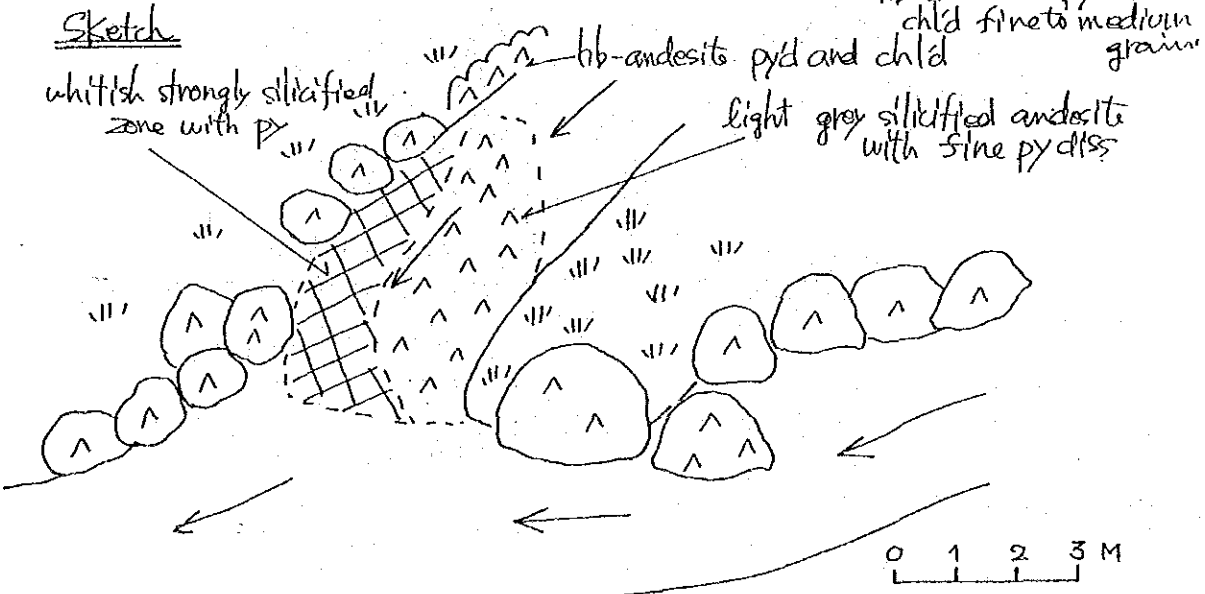 Sketch
chl'd fine to medium
grain
hb-andesite py'd and chl'd
whitish strongly silicified
zone with py
light grey silicified andesite
with fine py diss
0 1 2 3 M